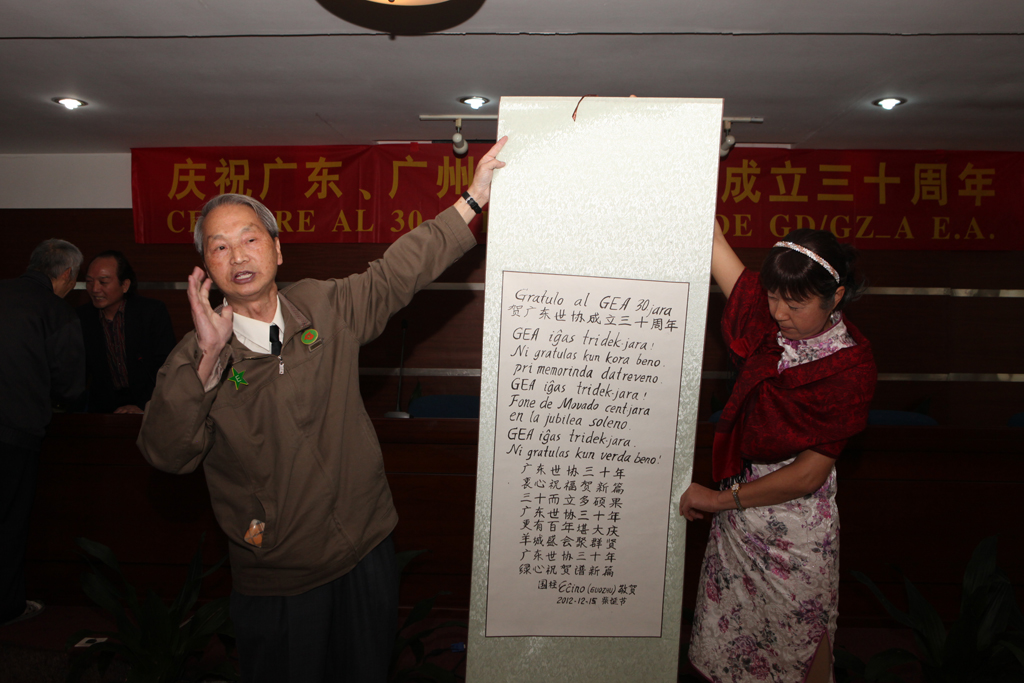 庆祝广东、广州 成立三十周年
AL 30 DE GD/GZ_A E.A.
Gratulo al GEA 30 jara
贺广东世协成立三十周年
GEA iĝas tridek-jara!
Ni gratulas kun kora beno
pri memorinda datreveno.
GEA iĝas tridek-jara!
Fone de Movado centjara
en la jubilea soleno.
GEA iĝas tridek-jara.
Ni gratulas kun verda beno!
广东世协三十年
衷心祝福贺新篇
三十而立多硕果
广东世协三十年
更有百年堪大庆
羊城盛会聚群贤
广东世协三十年
绿心祝贺谱新篇
国柱 Eĉino (GUOZHU) 敬贺
2012-12-15 书